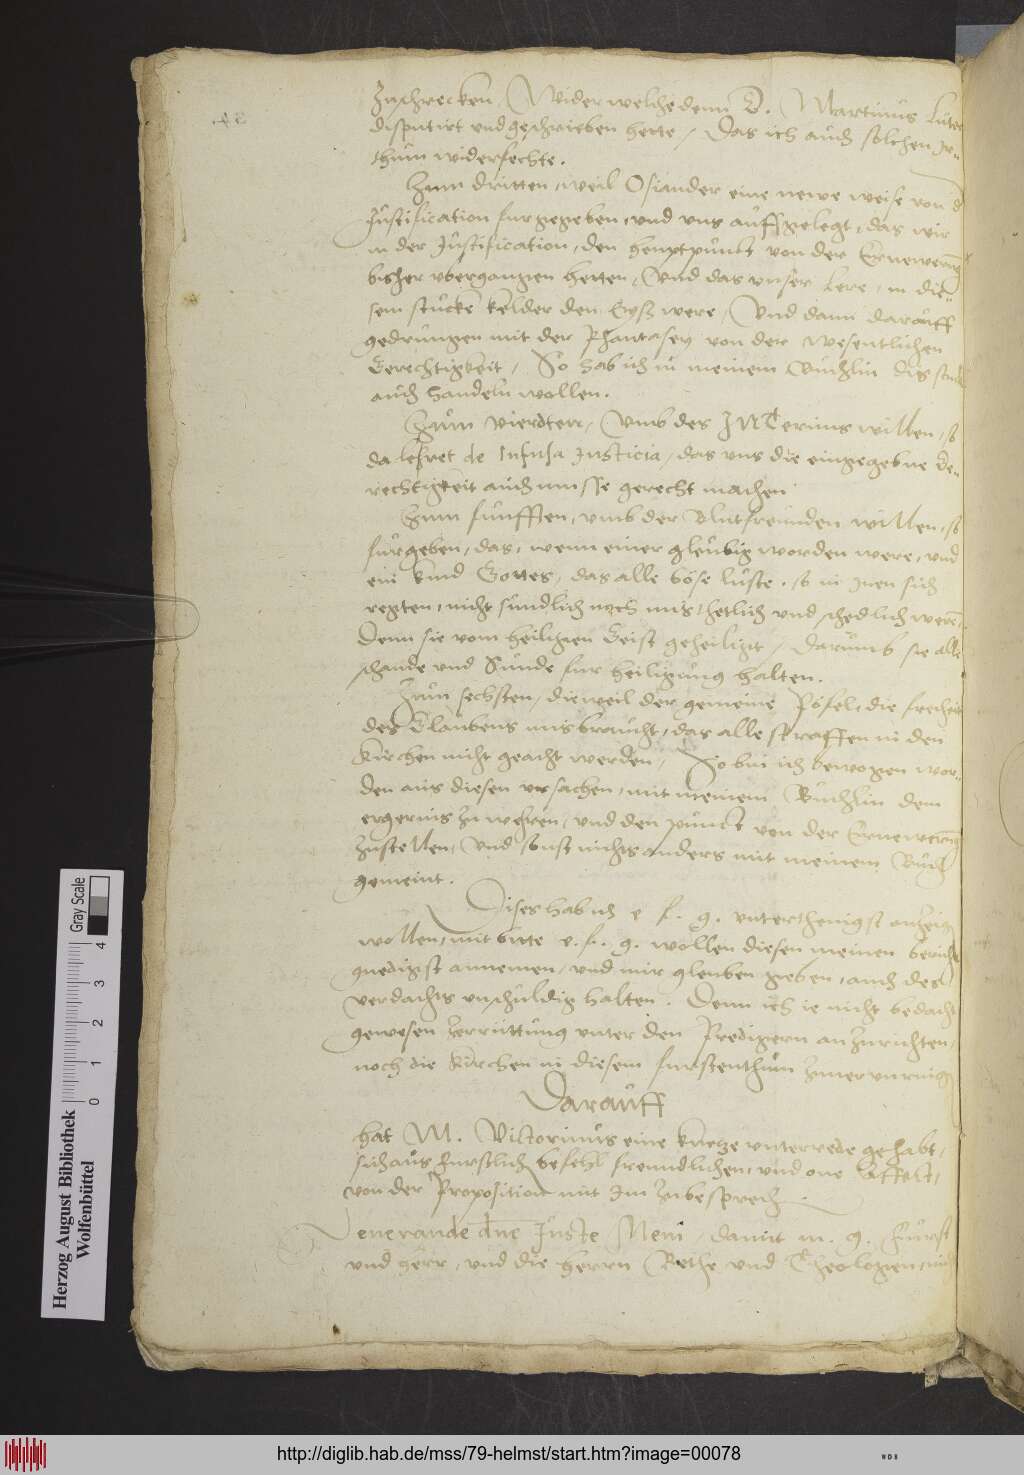 Zuschrecken, Wider welche denn D. Martinus Luter
disputirt und geschrieben hette, Das ich auch solchen Jr-
thum widerfechte.
Zum dritten, weil Osiander eine newe weise von d
Justification furgegeben, und uns auffgelegt, das wir
in der Justification, den heuptpunct von der Ernewerung
bisher ubergangen hetten, Und das unser Lere, in die-
sem stucke kelder den Eys were, Und dann darauff
gedrungen mit der Phantasey von der wesentlichen
Gerechtigkeit, So hab ich in meinem Buchlin dis
auch handeln wollen.
Zum vierdten, Umb des INTerims willen, so
da lehret de Infusa Iusticia, das uns die eingegebne Ge-
rechtigkeit auch muste gerecht machen
Zum funfften, umb der Blutfreunden willen, so
furgeben, das, wenn einer gleubig worden were, und
ein kind Gottes, das alle böse luste, so in Jnen sich
regten, nicht sundlich noch und schedlich weren,
Denn sie vom heiligen Geist geheiligt, Darumb sie alle
schande und Sunde fur heiligung halten.
Zum sechsten, dieweil der gemeine Pöfel, die freiheit
des Glaubens misbraucht, das alle straffen in den
Kirchen nicht geacht werden, So bin ich bewogen wor-
den aus diesen ursachen, mit meinem Buchlin dem
ergernis zu wehren, und den punct von der Ernewerung
zustellen, Und sonst nichts anders mit meinem Buch
gemeint.
Dises hab ich e f. g. unterthenigst anzeigen
wollen, mit bitte e. f. g. wollen diesen meinen bericht
gnedigst annemen, und mir glauben geben, auch des
verdachts unschuldig halten. Denn ich ie nicht bedacht
gewesen zerruttung unter den Predigern anzurichten,
noch die Kirchen in diesem furstenthum zuverunruigen
Darauff
hat M. Victorinus eine kurtze unterrede gehabt,
sich aus furstlich befehl freundlichen, und one Affect,
von der Proposition mit Im zubesprech
Venerande dne Juste Meni, damit m. g. Furst
und Herr, und die herrn Rethe und Theologen, mich
Herzog August Bibliothek
Wolfenbüttel
0 1 2 3 4
Gray Scale
http://diglib.hab.de/mss/79-helmst/start.htm?image=00078